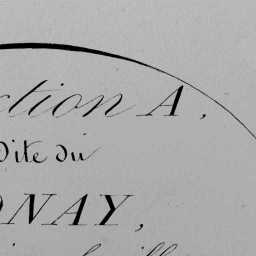 ction A,
Dite du
ONAY,